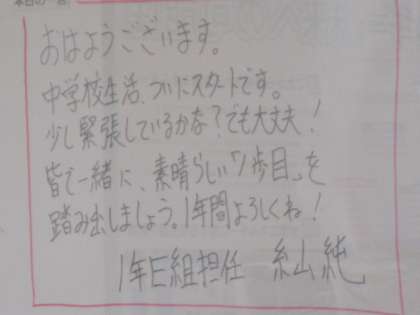 本日の一言
おはようございます。
中学校生活、ついにスタートです。
少し緊張しているかな?でも大丈夫!
皆で一緒に、素晴らしい「1歩目」を
踏み出しましょう。1年間よろしくね!
1年E組担任 糸山 純